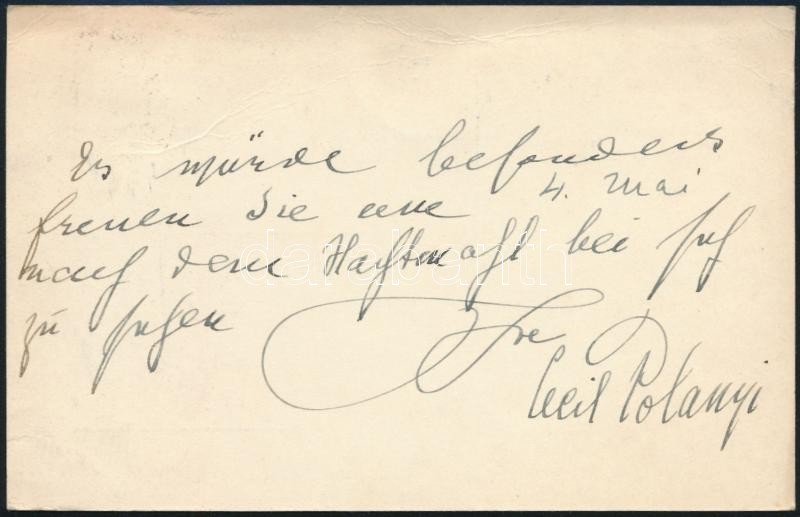 Es würde besonders
freuen Sie am 4. Mai
nach dem Nachtmahl bei sich
zu sehen Ihre
Cecil Polanyi
darabanth